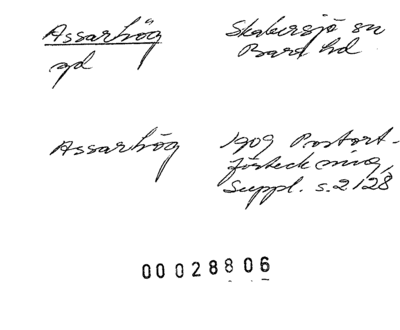 Assarhög Skabersjö sn
gd Bara hd
Assarhög 1909 Postort-
förteckning,
Suppl. s. 2128
00028806